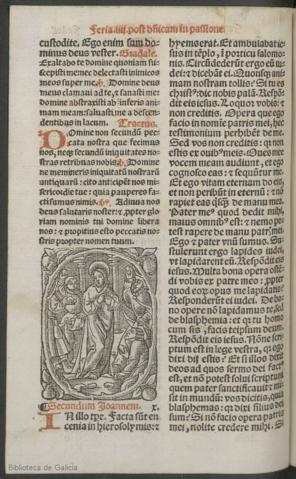 Feria.iiij.post dñicam in passione
custodite. Ego enim sum do-
minus deus vester. Graduale.
Exaltabo te domine quoniam su-
scepisti me: nec delectasti inimicos
meos super me. Domine deus
meus clamaui ad te, & sanasti me:
domine abstraxisti ab inferis ani-
mam meam: saluasti me a descen-
dentibus in lacum. Tractus.
Domine non secundũ pec-
cata nostra que fecimus
nos: neq; secundũ iniquitates nos-
tras retribuas nobis. Domine
ne memineris iniquitatũ nostrarũ
antiquarũ: cito anticipẽt nos mi-
sericordie tue: quia pauperes fa-
cti sumus nimis. Adiuua nos
deus salutaris noster: & propter glo-
riam nominis tui domine libera
nos: & propitius esto peccatis no-
stris propter nomen tuum.
Secundum Joannem. x.
In illo tpe. Facta sũt en-
cenia in hierosolymis: &
hyems erat. Et ambulabat ie-
sus in tẽplo, i porticu salomo-
nis. Circũdederũt ergo eũ iu-
dei: & dicebãt ei. Quousq; ani-
mam nostram tollis? Si tu es
christ9 dic nobis palã. Respõ-
dit eis iesus. Loquor vobis: &
non creditis. Opera que ego
facio in nomine patris mei, hec
testimonium perhibẽt de me.
Sed vos non creditis: quia nõ
estis ex ouib9 meis. Oues mee
vocem meam audiunt, et ego
cognosco eas: & sequũtur me.
Et ego vitam eternam do eis,
et non peribũt in eternũ: & nõ
rapiet eas q̃sq̃ de manu mea.
Pater me9 quod dedit mihi,
maius omnib9 est: & nemo po-
test rapere de manu patris mei.
Ego & pater vnũ sumus. Su-
stulerunt ergo lapides iudei,
vt lapidarent eũ. Respõdit eis
iesus. Multa bona opera ostẽ-
di vobis ex patre meo: propter
quod eorũ opus me lapidatis?
Responderũt ei iudei. De bo-
no opere nõ lapidamus te, sed
de blasphemia: et q̃ tu homo
cum sis, facis teipsum deum.
Respõdit eis iesus. Nõne scri-
ptum est in lege vestra, q̃ ego
dixi dii estis? Et si illos dixit
deos ad quos sermo dei factus
est, et nõ potest solui scriptura:
quem pater sanctificauit & mi-
sit in mundũ: vos dicitis, quia
blasphemas: q̃ dixi filius dei
sum? Si nõ facio opera patris
mei, nolite credere mihi. Si
Biblioteca de Galicia